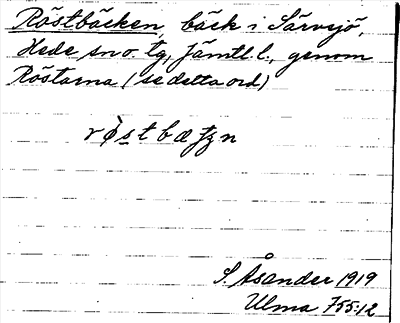 Röstbäcken, bäck i Särvsjö,
Hede sn o. tg, Jämtl. l., genom
Röstarna (se detta ord)
röstbæƶn
S. Åsander 1919
Ulma 755:12